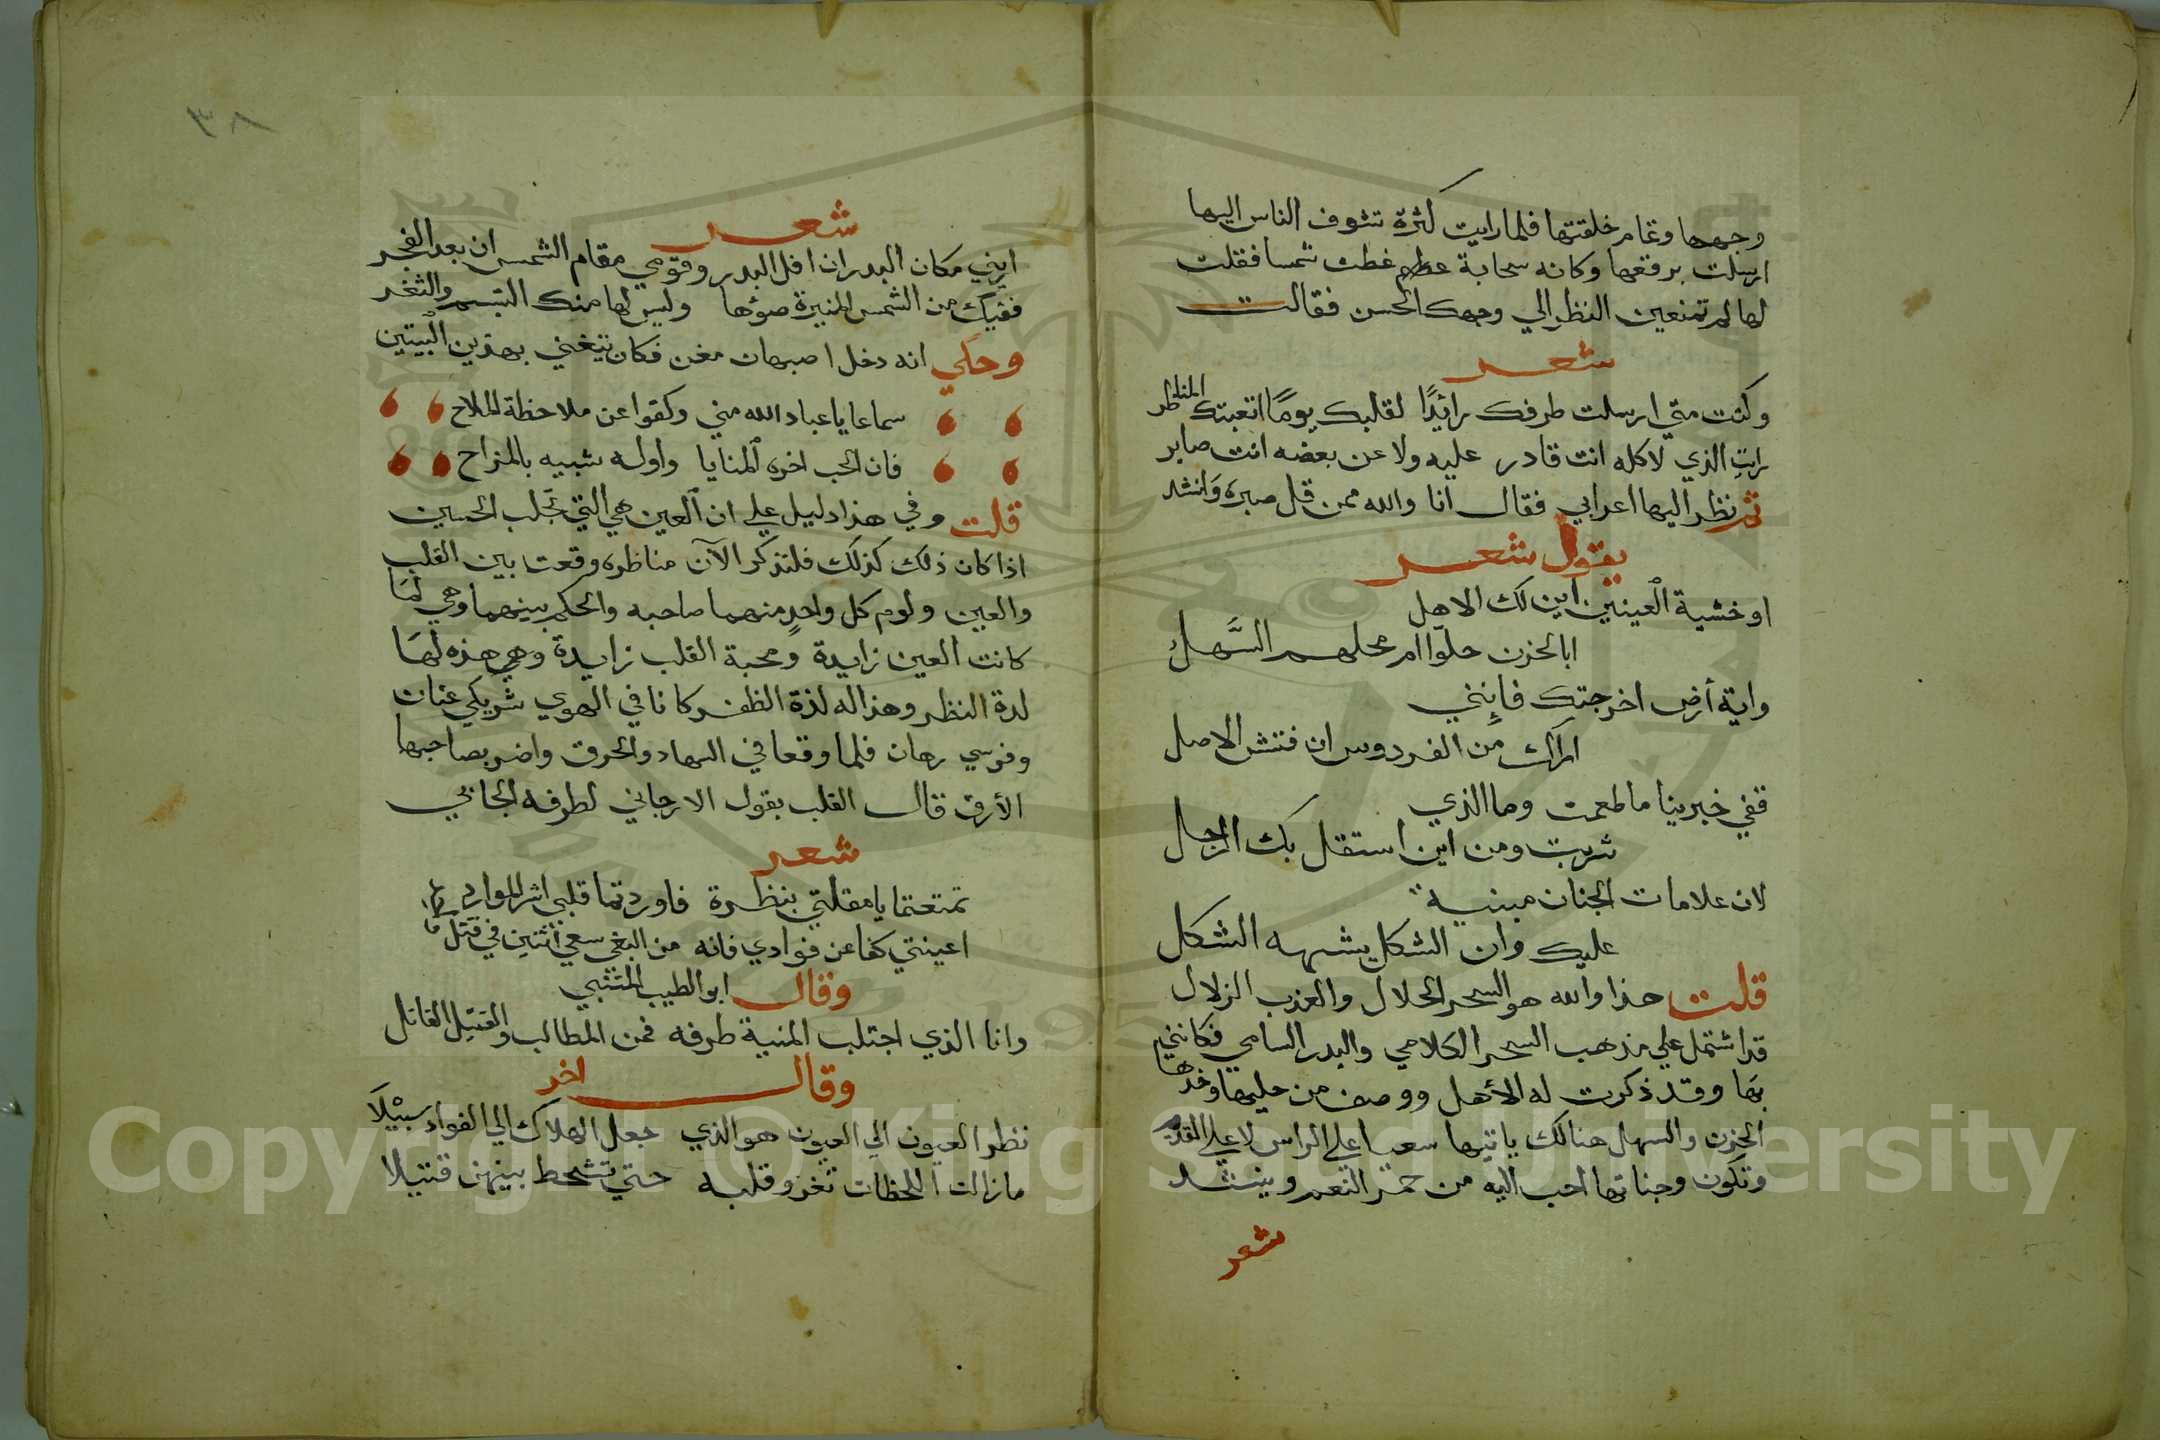 وجهها وتمام خلقتها فلما رايت كثرة تشوف الناس اليها
ارسلت برقعها وكانه سحابة غطت شمسا فقلت
لها لم تمنعين النظر الي وجهك الحسن فقالت
شعر
وكنت متي ارسلت طرفك رائدًا لقلبك يومًا اتعبتك المناظر
رايت الذي لا كله انت قادر عليه ولا عن بعضه انت صابر
ثم نظر اليها اعرابي فقال انا والله ممن قل صبره وانشد
يقول شعر
او خشية العينين اين لك الاهل
ابا لحزن حلوا ام محلهم السَّهل
واية أرض اخرجتك فإنني
اراك من الفردوس ان فتش الاصل
قفي خبرينا ما طعمت وما الذي
شربت ومن اين استقل بك الرحل
لان علامات الجنان مبينة
عليك وان الشكل يشبهه الشكل
قلت هذا والله هو السحر الحلال والعذب الزلال
قد اشتمل علي مذهب السحر الكلامي والبدر السامي فكانني
بها وقد ذكرت له الأهل ووصف من حليها وخدها
الحزن والسهل هنالك ياتيها سعيا علي الراس لا علي القدم
وتكون وجناتها احب اليه من حمر النعم وينشد
شعر
٣٨
شعر
اريني مكان البدر ان افل البدر وقومي مقام الشمس ان بعد الفجر
ففيك من الشمس المنيرة ضوئها وليس لها منك التبسم والثغر
وحكي انه دخل اصبهان مغن فكان يتغني بهذين البيتين
سماعا يا عباد الله مني وكفوا عن ملاحظة الملاح
فان الحب اخره المنايا واوله شبيه بالمزاح
قلت وفي هذا دليل علي ان العين هي التي تجلب الحسين
اذا كان ذلك كذلك فلنذكر الآن مناظره وقعت بين القلب
والعين ولوم كل واحدٍ منهما صاحبه والحكم بينهما وهي لما
كانت العين زايدة ومحبة القلب زايدة وهي هذه لها
لدة النظر وهذا له لذة الظفر كانا في الهوي شريكي عنان
وفرسي رهان فلما وقعا في السهاد والحرق واضر بصاحبها
الأرق قال القلب يقول الارجاني لطرفه الجاني
شعر
تمتعتما يا مقلتي بنظرة فاوردتما قلبي اشر الموارد
اعينتي كفا عن فوادي فانه من البغي سعي اثنين في قتل
وقال ابو الطيب المتنبي
وانا الذي اجتلب المنية طرفه فمن المطالب والقتيل القاتل
وقال اخر
نظر العيون الي العيون هو الذي جعل الهلاك الي الفواد سبيلا
ما زالت اللحظات تغزو قلبه حتي تشحط بينهن قتيلا
Copyright © King Saud University